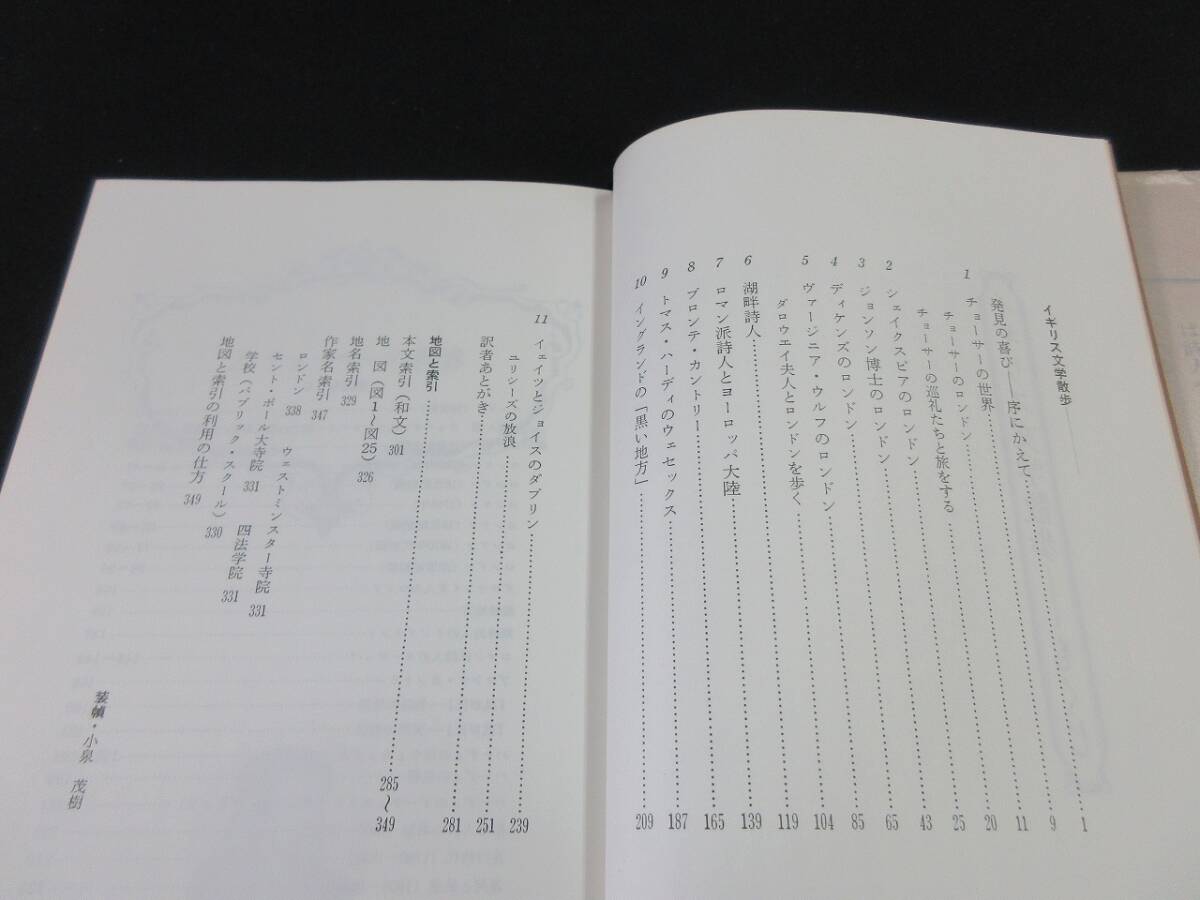 イギリス文学散歩
発見の喜び――序にかえて……1
1 チョーサーの世界……9
チョーサーのロンドン……11
チョーサーの巡礼たちと旅をする……20
2 シェイクスピアのロンドン……25
3 ジョンソン博士のロンドン……43
4 ディケンズのロンドン……65
5 ヴァージニア・ウルフのロンドン……85
ダロウェイ夫人とロンドンを歩く……104
6 湖畔詩人……119
7 ロマン派詩人とヨーロッパ大陸……139
8 ブロンテ・カントリー……165
9 トマス・ハーディのウェセックス……187
10 イングランドの「黒い地方」……209
11 イェイツとジョイスのダブリン……239
ユリシーズの放浪……251
訳者あとがき……281
地図と索引……285〜349
本文索引(和文) 301
地 図(図1〜図25) 326
地名索引 329
作家名索引 347
ロンドン 338 ウェストミンスター寺院 331
セント・ポール大寺院 331 四法学院 331
学校(パブリック・スクール) 330
地図と索引の利用の仕方 349
装幀・小泉 茂樹